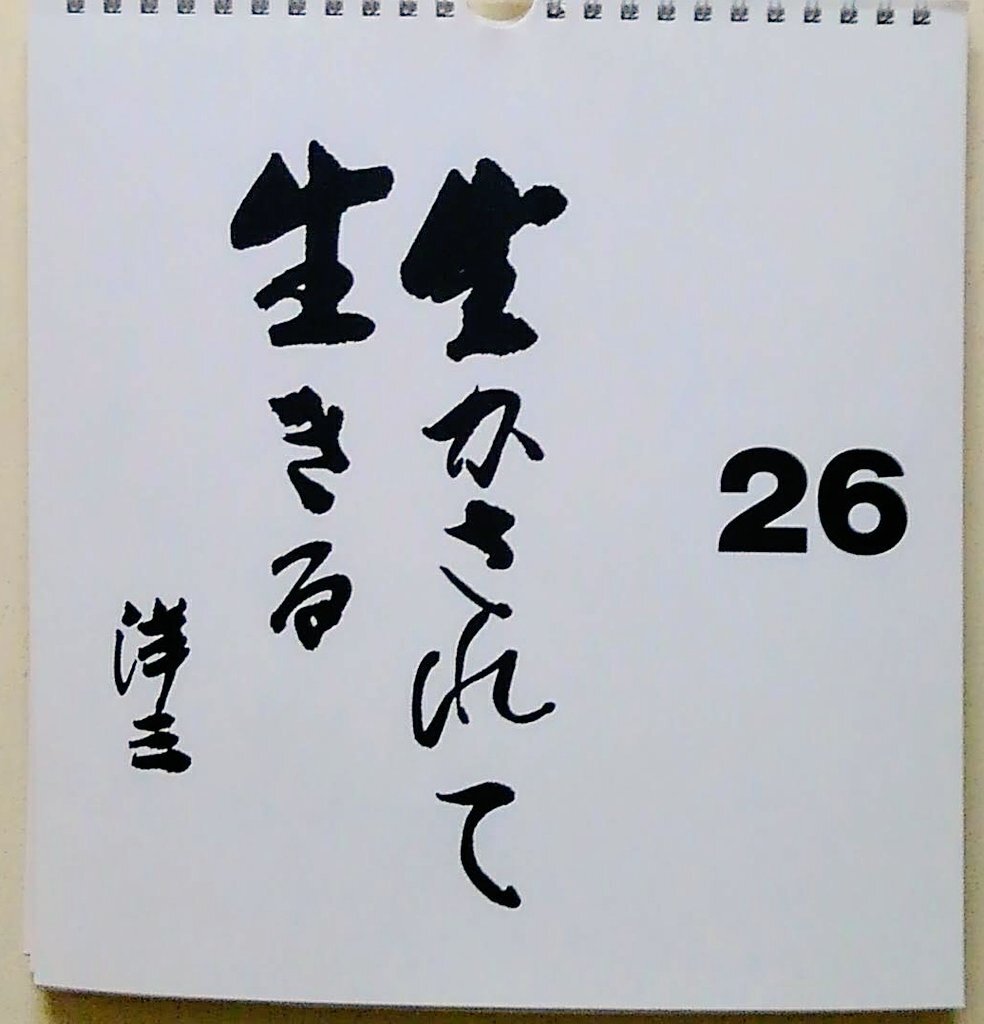 26
生かされて
生きる
洋三